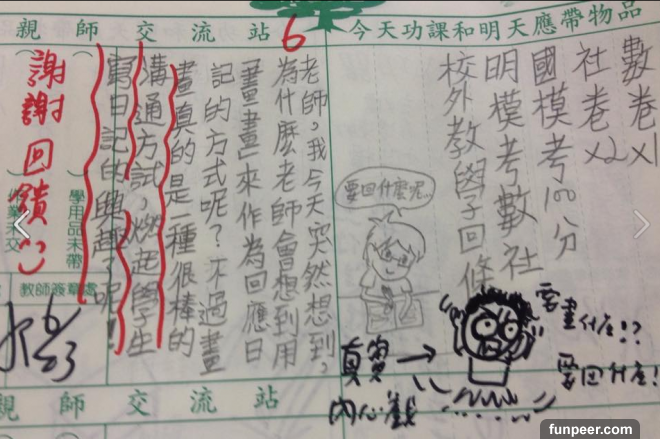 今天功課和明天應帶物品
數卷x1
社卷x2
國模考100分
明模考數社
校外教學子回條
要回什麼呢..
真實
內心戲
要畫什麼!?
要回什麼!
親師交流站
6
老師，我今天突然想到，
為什麼老師會想到用
「畫畫」來作為回應日
記的方式呢？不過畫
畫真的是一種很棒的
溝通方試，燃起學生
寫日記的興趣了呢！
謝謝回饋
學用品未帶
作業未交
教師簽章處
6/3
親師交流站
funpeer.com